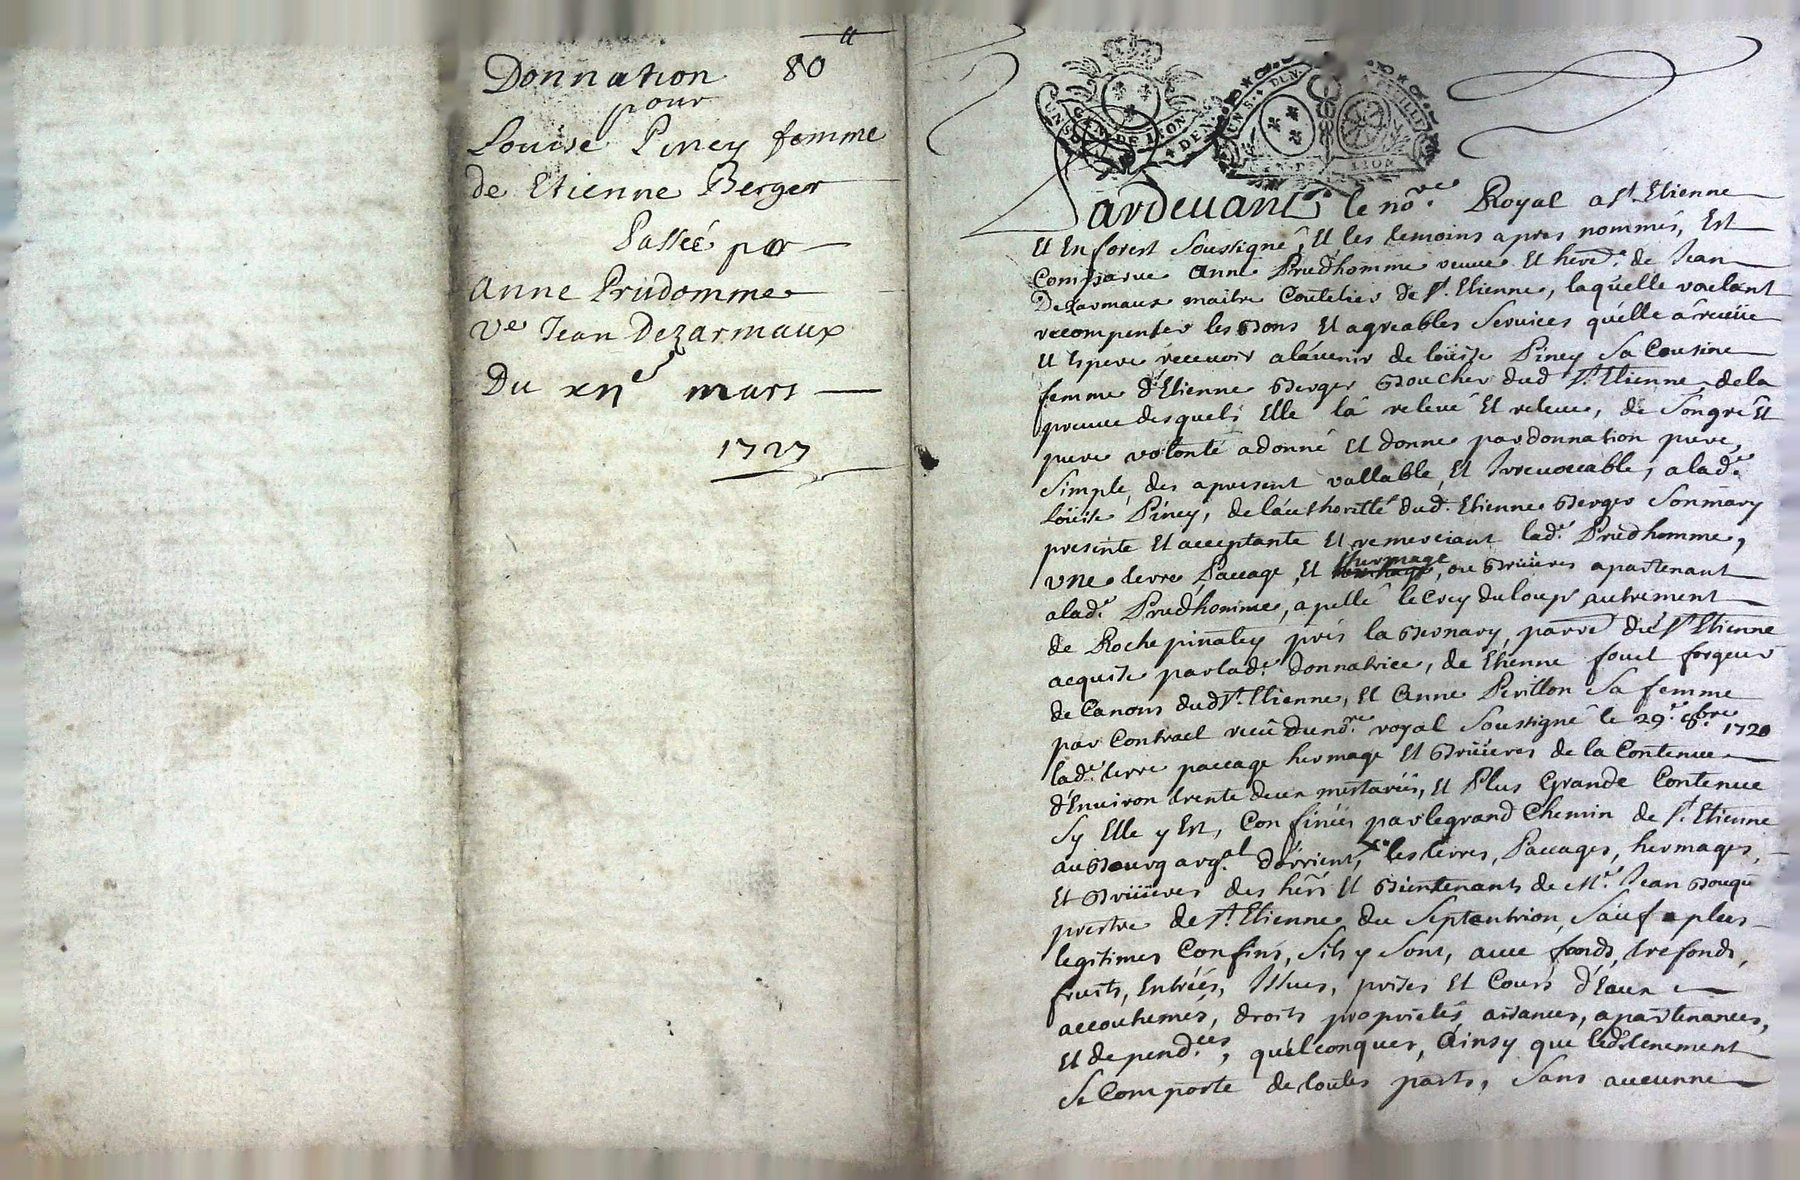 Donnation 80 ₶
pour
Louise Piney femme
de Etienne Berger
Passée par
Anne Prudomme
ve Jean Dezarmaux
Du xiie mars
1727
GEN DE LION
Pardevant le nore Royal a St. Etienne
Et En forest Soussigné, Et les temoins apres nommés, Est
Comparue Anne Prudhomme veuve Et hered. de Jean
Dezarmaux maitre Coutelier de St. Etienne, laquelle voulant
recompenser les Bons Et agreables Services qu'elle a reçeue
Et Espere recevoir a l'avenir de loüise Piney Sa Cousine
femme d'Etienne Berger Boucher dud St. Etienne, de la
preuve desquels Elle l'a relevé Et releve, de Son gré Et
pure volonté a donné Et donne par donnation pure,
Simple, des apresent vallable, Et Irrevocable, a lade.
loüise Piney, de l'authoritté dud. Etienne Berger Son mary
presente Et acceptante Et remerciant lade. Prudhomme,
une terre Paccage, Et hermage, ou Bruieres apartenant
a lade. Prudhomme, apellé le Crey du loup autrement
de Rochepinaley prés la Bernary, parre. du St Etienne
acquise par lade. donnatrice, de Etienne fouel forgeur
de Canons dud St. Etienne, Et Anne Perillon Sa femme
par Contract reeu du nore. royal Soussigné le 29e. 8bre 1720
lade. terre paccage hermage Et Bruieres de la Contenue
d'Environ trente deux mestariés, Et Plus Grande Contenue
Sy Elle y Est, Confinées par le grand Chemin de St. Etienne
au Bourg argal d'orrient, les terres, Paccages, hermages,
Et Bruieres des hers Et Bientenants de Mre. Jean
prestre de St. Etienne du Septentrion, Sauf a plus
legitimes Confins, S'ils y Sont, avec fonds, trefonds,
fruits, Entrées, Issues, prises Et Cours d'Eaux
accoutumés, droits proprietés, aisances, apartenances,
Et dependces, quelconques, Ainsy que led. tenement
Se Comporte de toutes parts, Sans aucunne